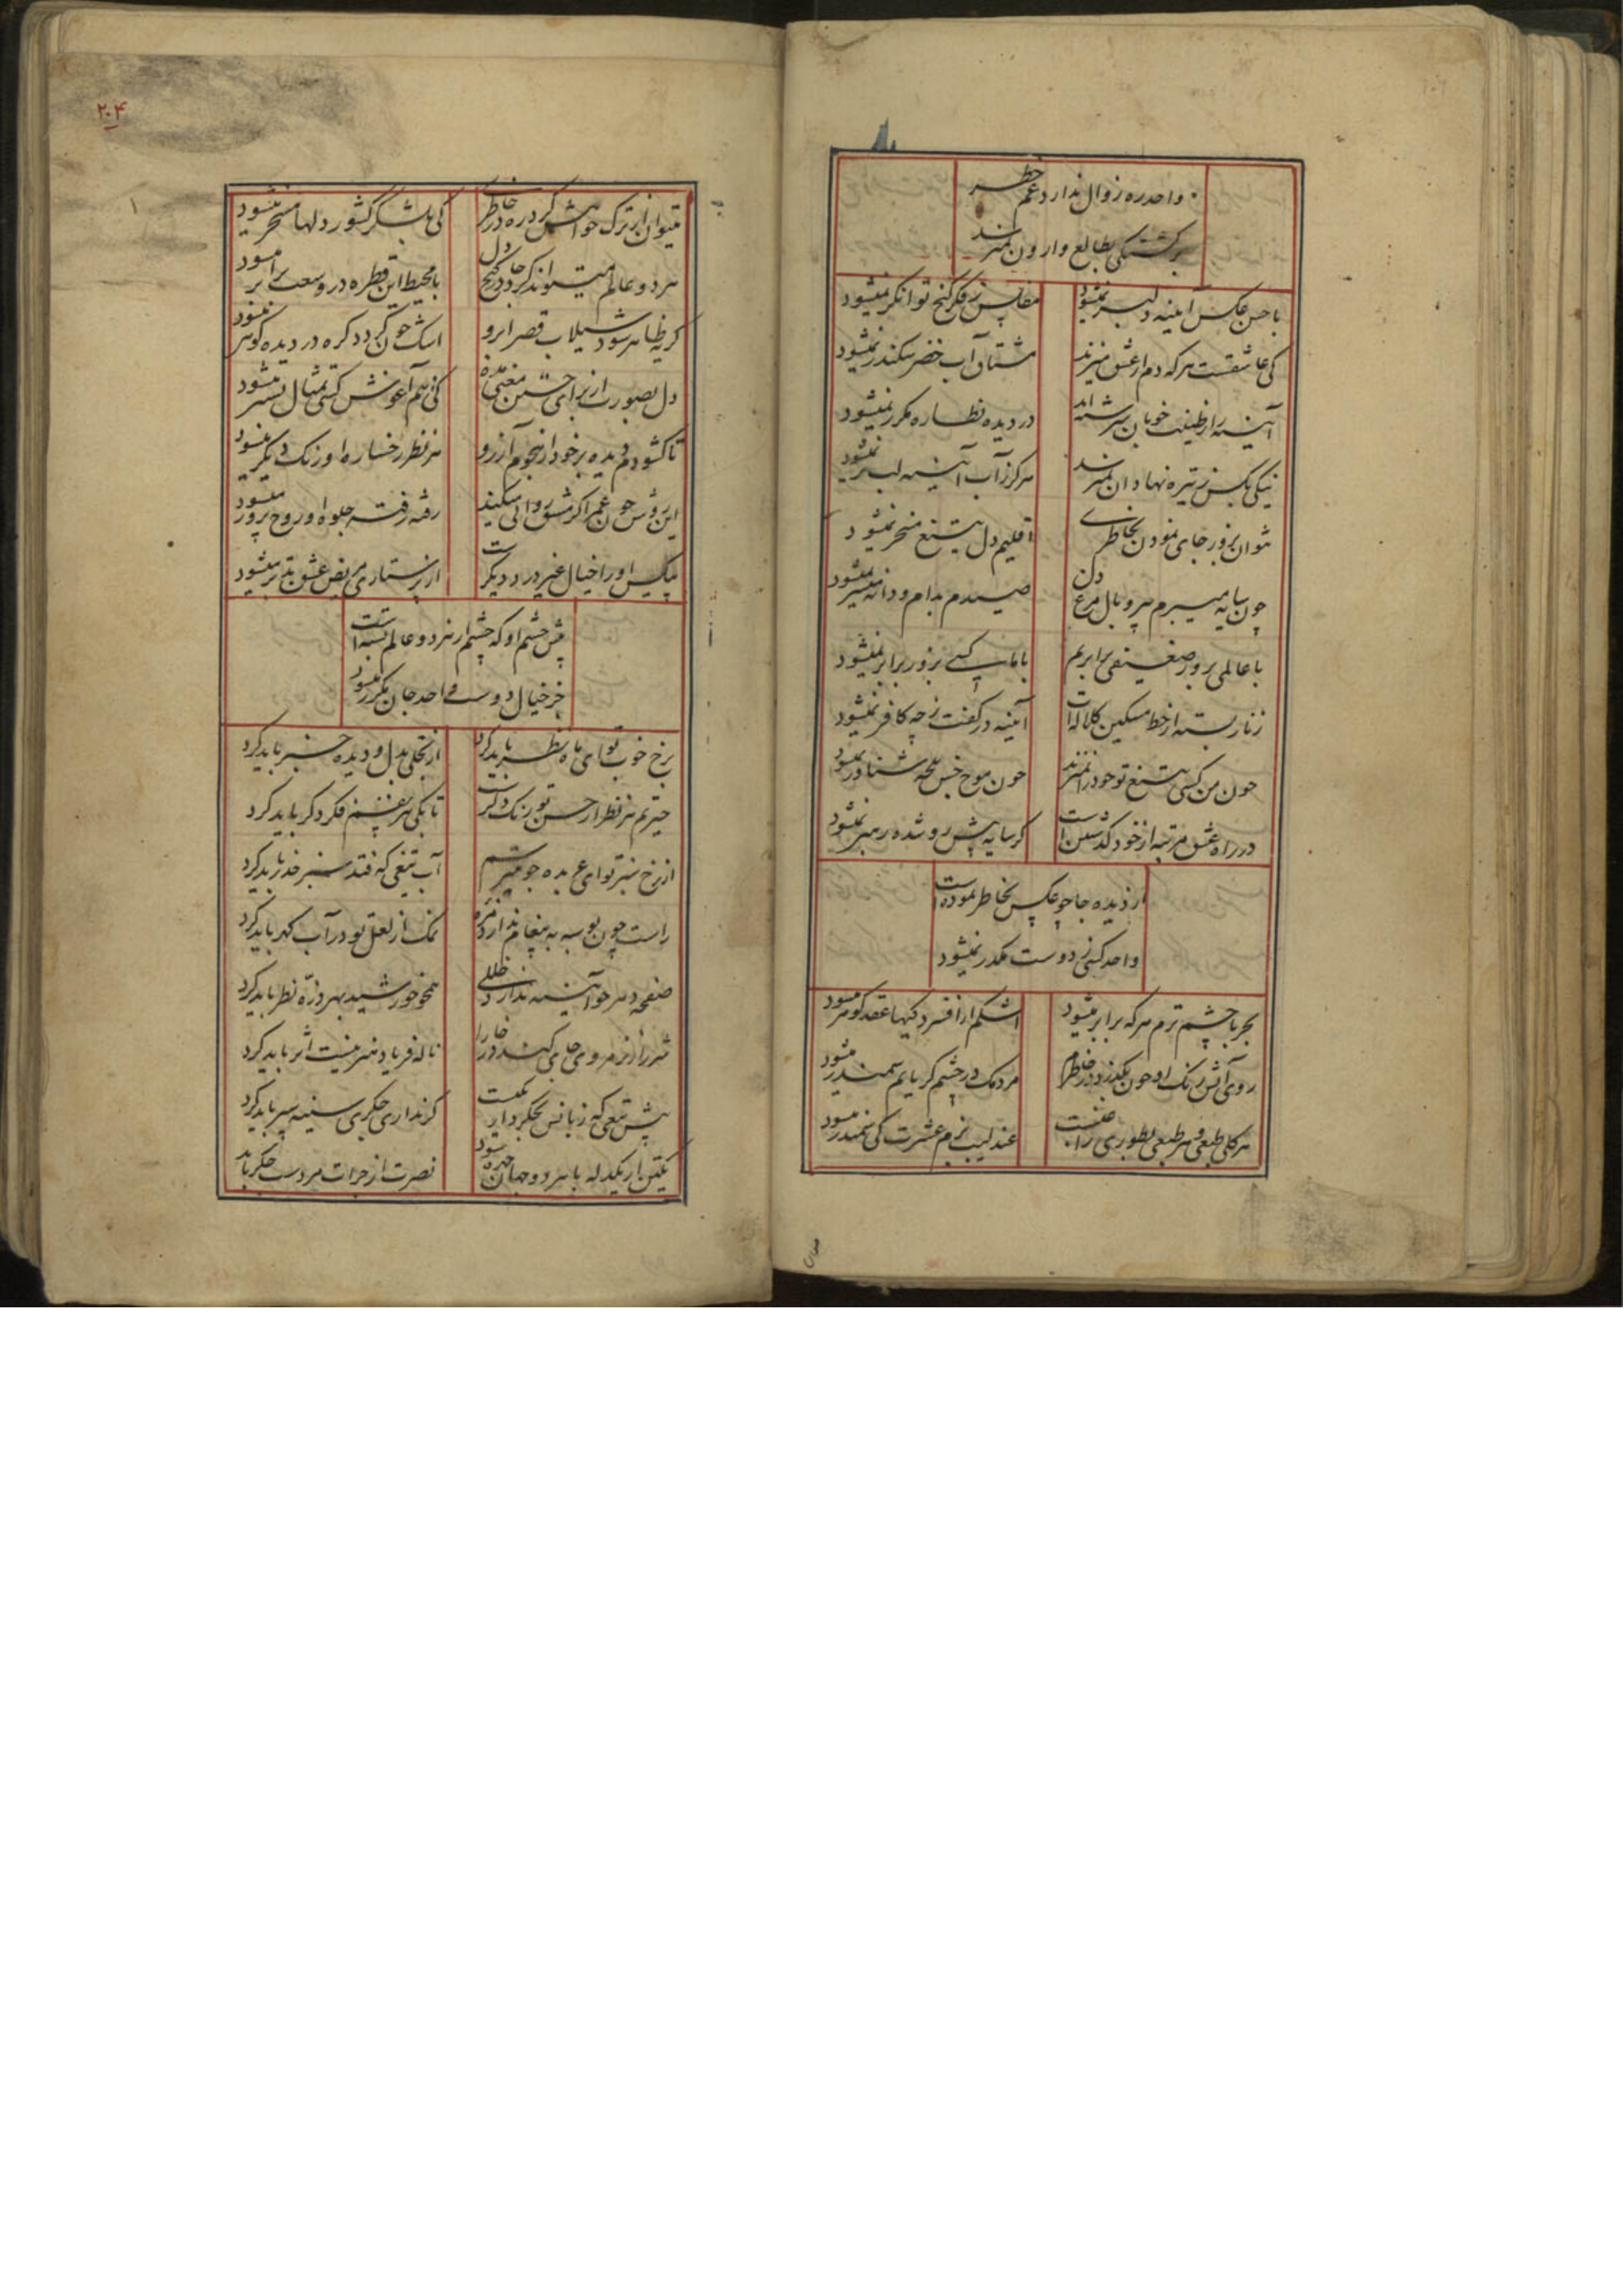 واحد ره زوال ندارد غم خطر
برگشتگی بطالع وارون نمیرسد
با حسن عکس آینه دلبر نمیشود
مفلس ز فکر گنج توانگر نمیشود
کی عاشقست هرکه دم از عشق میزند
مشتاق آب خضر سکندر نمیشود
آینه را ز طینت خوبان سرشته‌اند
در دیده نظاره مکرر نمیشود
نیکی بکس ز تیره نهادان نمیرسد
هرگز ز آب آینه لب تر نمیشود
نتوان بزور جای نمودن بخاطری
اقلیم دل بتیغ مسخر نمیشود
چون سایه میپرم به پر و بال مرغ دل
صیدم بدام و دانه میسر نمیشود
با عالمی بزور ضعیفی برابرم
با ما کسی بزور برابر نمیشود
زنار بسته از خط مشکین کلاله‌ات
آینه در کفت ز چه کافر نمیشود
چون من کسی بتیغ تو خود را نمیزند
چون موج خس بلجه شناور نمیشود
در راه عشق مرتبه از خود گذشتن است
گر سایه پیش رو شده رهبر نمیشود
از دیده جا چو عکس بخاطر نموده است
واحد کسی ز دوست مکدر نمیشود
بحر با چشم ترم هرکه برابر میشود
اشکم از افسردگیها عقد گوهر میشود
روی آتش رنگ او چون بگذرد در خاطرم
مردمک در چشم گریانم سمندر میشود
هر گلی طبعی و هر طبعی بطوری راغبست
عندلیب بزم عشرت کی سمندر میشود
میتوان از ترک خواهش کرد ره در خاطری
کی بلشکر کشور دلها مسخر میشود
هر دو عالم میتواند کرد جا در کنج دل
با محیط این قطره در وسعت برابر میشود
گریه ظاهر شود سیلاب قصر ابرو
اشک چون گردد گره در دیده گوهر میشود
دل بصورت از برای جستن معنی مده
کی هم‌آغوش کسی تمثال بستر میشود
تا گشودم دیده بر خود از هجوم آرزو
هر نظر رخساره او رنگ دیگر میشود
این روش چون عمر اگر مشق روانی میکند
رفته رفته جلوه او روح پرور میشود
بیکس او را خیال غیر درد دیگرست
از پرستاری مریض عشق بدتر میشود
پیش چشم او که چشم از هر دو عالم بسته است
جز خیال دوست کی واحد جان بگذر میشود
برخ خوب تو ای ماه نظر باید کرد
از تجلی بدل و دیده خبر باید کرد
حیرتم هر نظر از حسن تو رنگ دگرست
تا بکی هر نفسم فکر دگر باید کرد
از رخ سبز تو ای عربده جو میترسم
آب تیغی که فتد سبز حذر باید کرد
راست چون بوسه به پیغام ندارد مزه
نمک از لعل تو در آب گهر باید کرد
صفحه دهر چو آینه ندارد خللی
همچو خورشید بهر ذره نظر باید کرد
شرر از نرم روی جای کند در خارا
ناله فریاد هنر نیست اثر باید کرد
پیش تیغی که زبانش بجگرداریست
گر نداری جگری سینه سپر باید کرد
یکتن ار یکدله با هر دو جهان چیره شود
نصرت از جرات مردست جگر باید